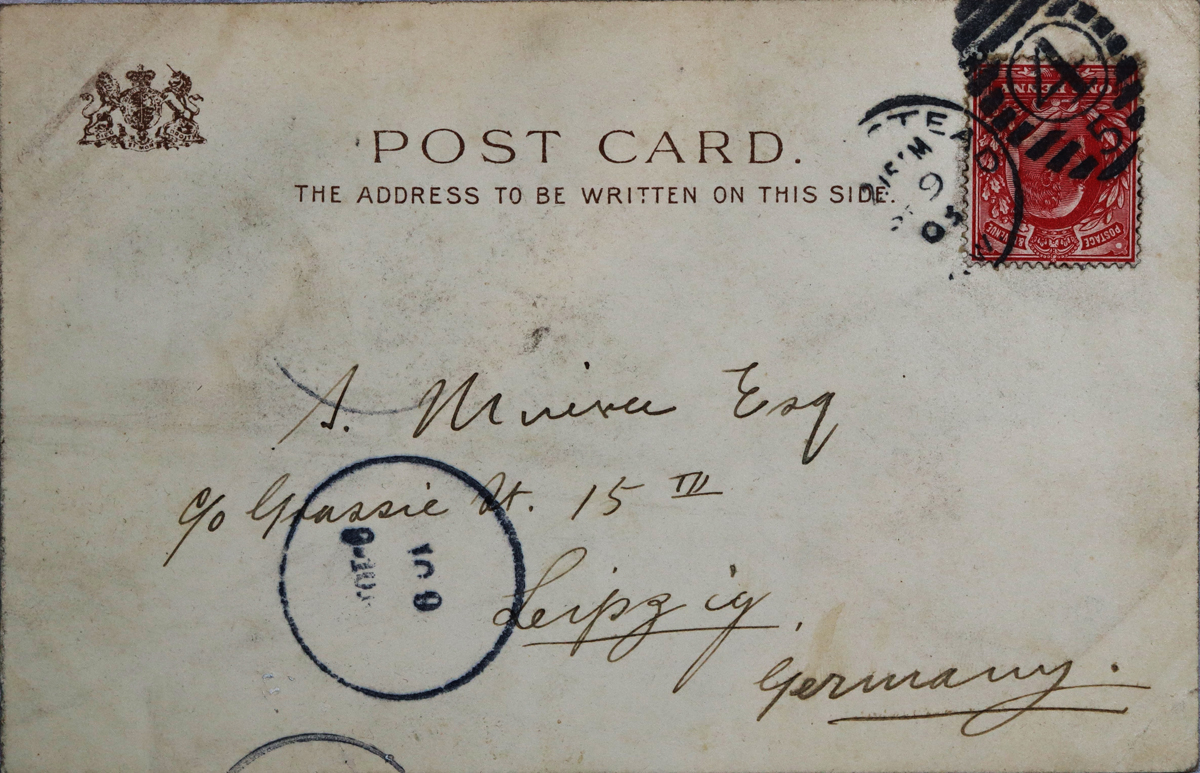 POST CARD.
THE ADDRESS TO BE WRITTEN ON THIS SIDE.
ONE PENNY
POSTAGE REVENUE
STEAD
9
03
4
5
Esq
c/o Grassie St. 15 III
Leipzig,
Germany.